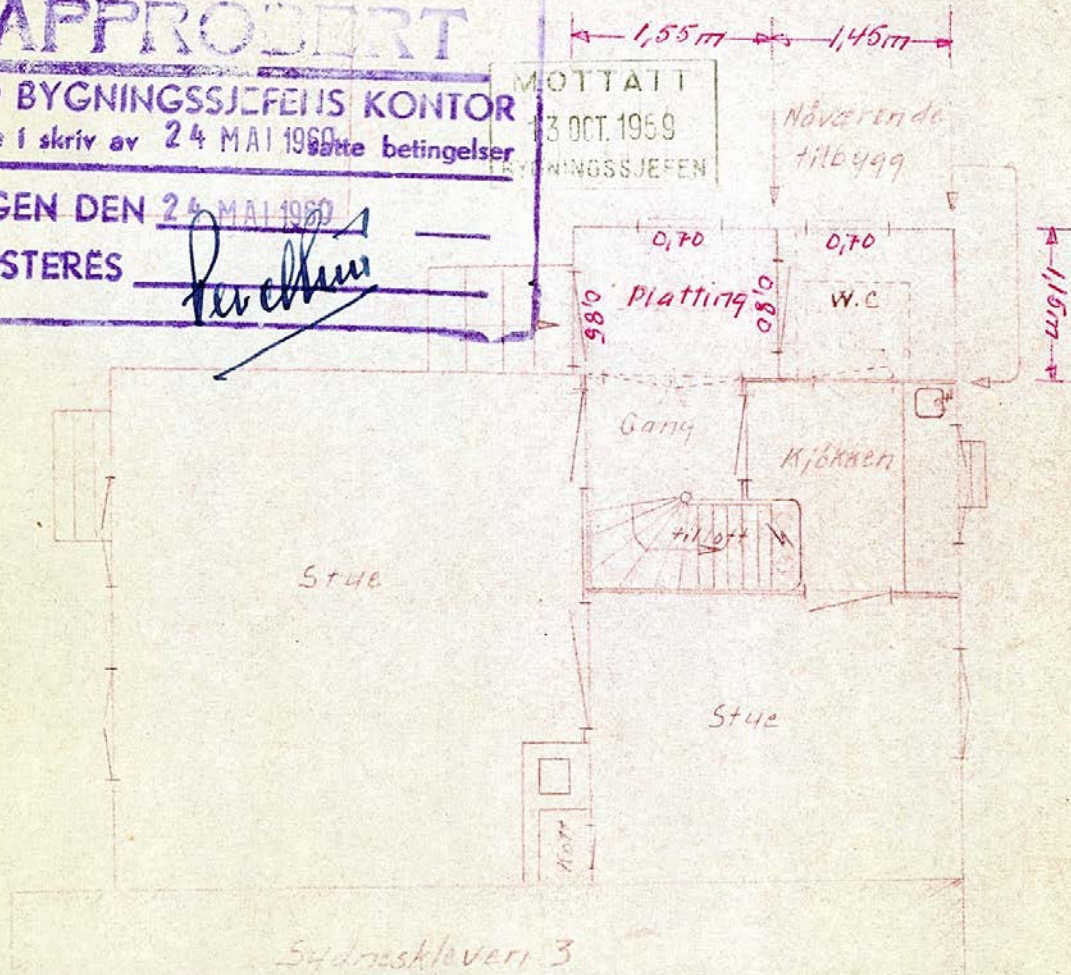 APPROBERT
BYGNINGSSJEFENS KONTOR
i skriv av 24 MAI 1960 satte betingelser
GEN DEN 24 MAI 1960
STERES
MOTTATT
13 OCT. 1959
BYGNINGSSJEFEN
1,55m
1,45m
Nåværende
tilbygg
0,70
0,70
0,86
Platting
0,80
W.C
1,15m
Gang
Kjökken
til loft
Stue
Stue
Kott
Sydneskleven 3